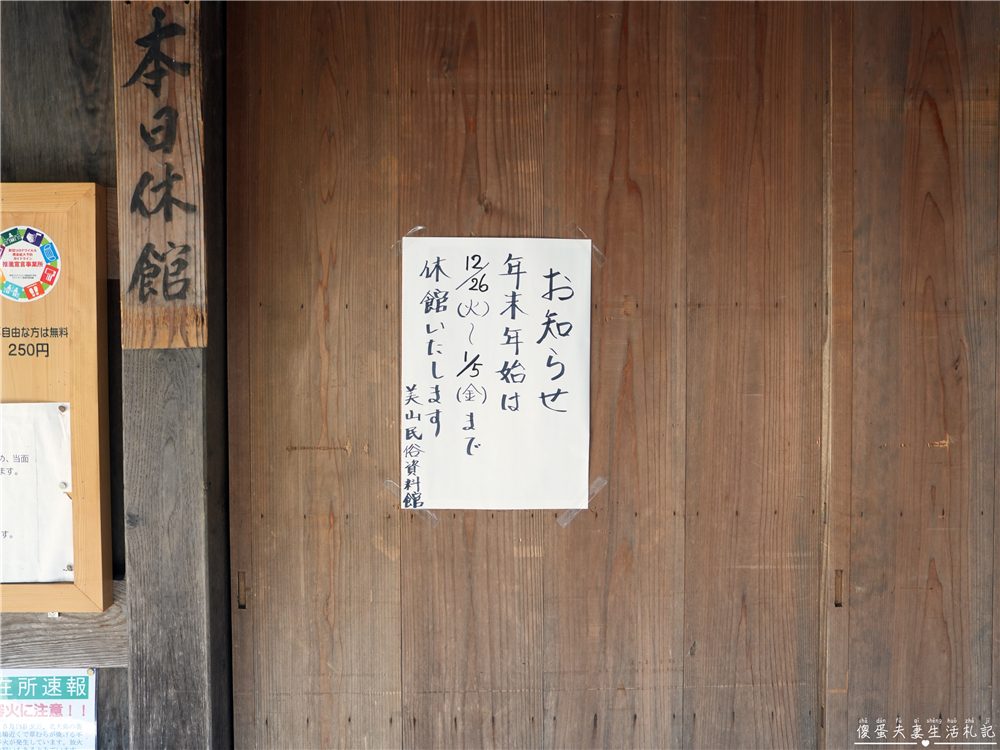 本日休館
お知らせ
年末年始は
12/26(火)～1/5(金)まで
休館いたします
美山民俗資料館
推進宣言事業所
自由な方は無料
250円
め、当面
ます。
す。
在所速報
火に注意！！
傻蛋夫妻生活札記